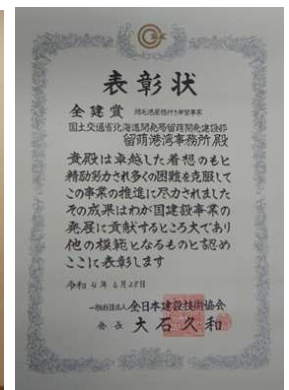 表彰状
全建賞 増毛港屋根付き岸壁事業
国土交通省北海道開発局留萌開発建設部
留萌港湾事務所殿
貴殿は卓越した着想のもと
精励努力され多くの困難を克服して
この事業の推進に尽力されました
その成果はわが国建設事業の
発展に貢献するところ大であり
他の模範となるものと認め
ここに表彰します
令和4年6月28日
一般社団法人 全日本建設技術協会
会長 大石久和